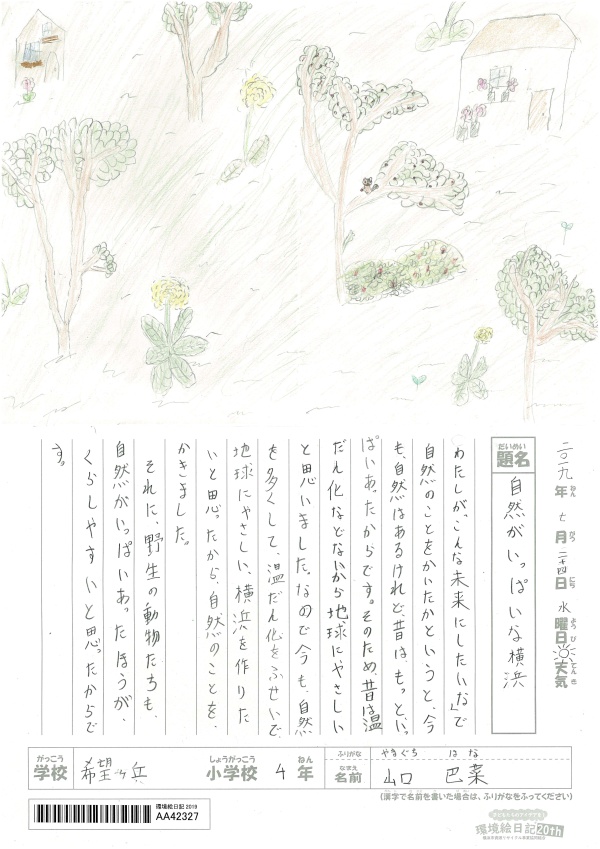 二〇一九年 七月 二十四日 水曜日 天気
ねん がつ にち ようび てんき
だいめい
題名
自然がいっぱいな横浜
わたしが「こんな未来にしたいな」で
自然のことをかいたかというと、今
も、自然はあるけれど、昔は、もっといっ
ぱいあったからです。そのため、昔は温
だん化などないから地球にやさしい
と思いました。なので今も、自然
を多くして、温だん化をふせいで、
地球にやさしい、横浜を作りた
いと思ったから、自然のことを、
かきました。
それに、野生の動物たちも、
自然がいっぱいあったほうが、
くらしやすいと思ったからで
す。
がっこう
学校
希望ヶ丘
しょうがっこう
小学校
4
ねん
年
ふりがな
やまぐち はな
なまえ
名前
山口 巴菜
(漢字で名前を書いた場合は、ふりがなをふってください)
環境絵日記 2019
AA42327
環境絵日記 20th